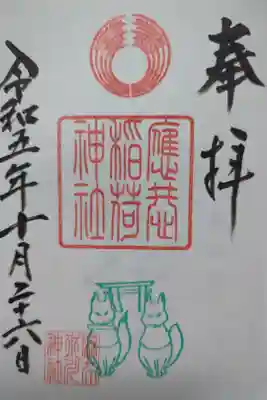 奉拝
稲荷
神社
令和五年十月二十六日